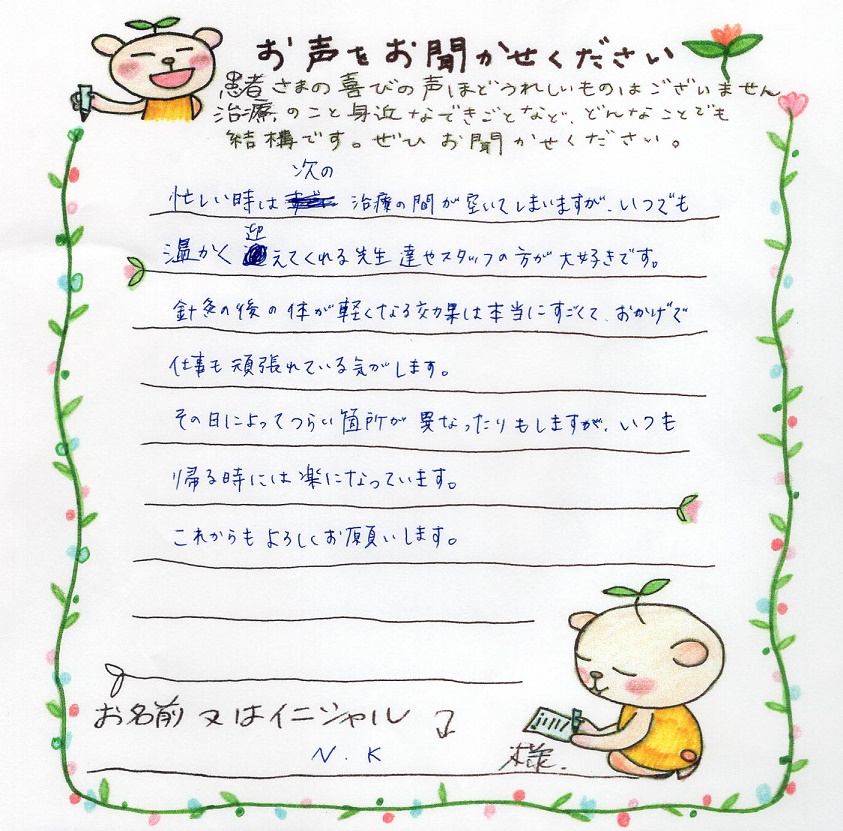 お声をお聞かせください
患者さまの喜びの声ほどうれしいものはございません
治療のこと身近なできごとなど、どんなことでも
結構です。ぜひお聞かせください。
次の
忙しい時は 治療の間が空いてしまいますが、いつでも
迎
温かく えてくれる先生達やスタッフの方が大好きです。
針灸の後の体が軽くなる効果は本当にすごくて、おかげで
仕事も頑張れている気がします。
その日によってつらい箇所が異なったりもしますが、いつも
帰る時には楽になっています。
これからもよろしくお願いします。
お名前又はイニシャル
N.K
様.